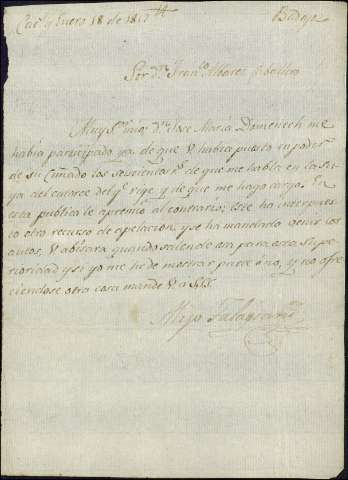 Cac.s y Enero 18 de 1817
Badajoz
Sor. dn. Franco. Albarez
Muy Sr. mio: dn. Jose Maria Domenech me
havia participado ya de que V. havia puesto en poder
de su Cuñado los seiscientos rs. de que me habla en la su-
ya del catorce del qe. rige, y de que me hago cargo. En
esta publica le apremio al contrario; este ha interpues-
to otro recurso de apelacion, y se ha mandado venir los
autos, V. abisara quando salen de ai para esta Supe-
rioridad y si yo me he de mostrar parte ó no, y no ofre-
ciendose otra cosa mande V. a S.S.S.
Alexo